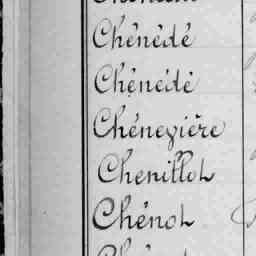 Chénédé
Chénédé
Chénevière
Chenillot
Chénot